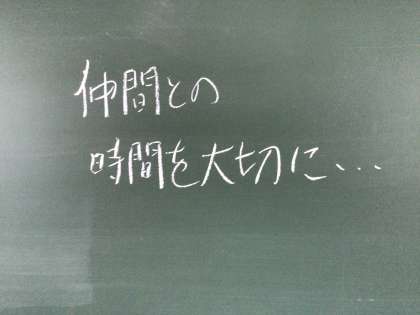 仲間との
時間を大切に、、、